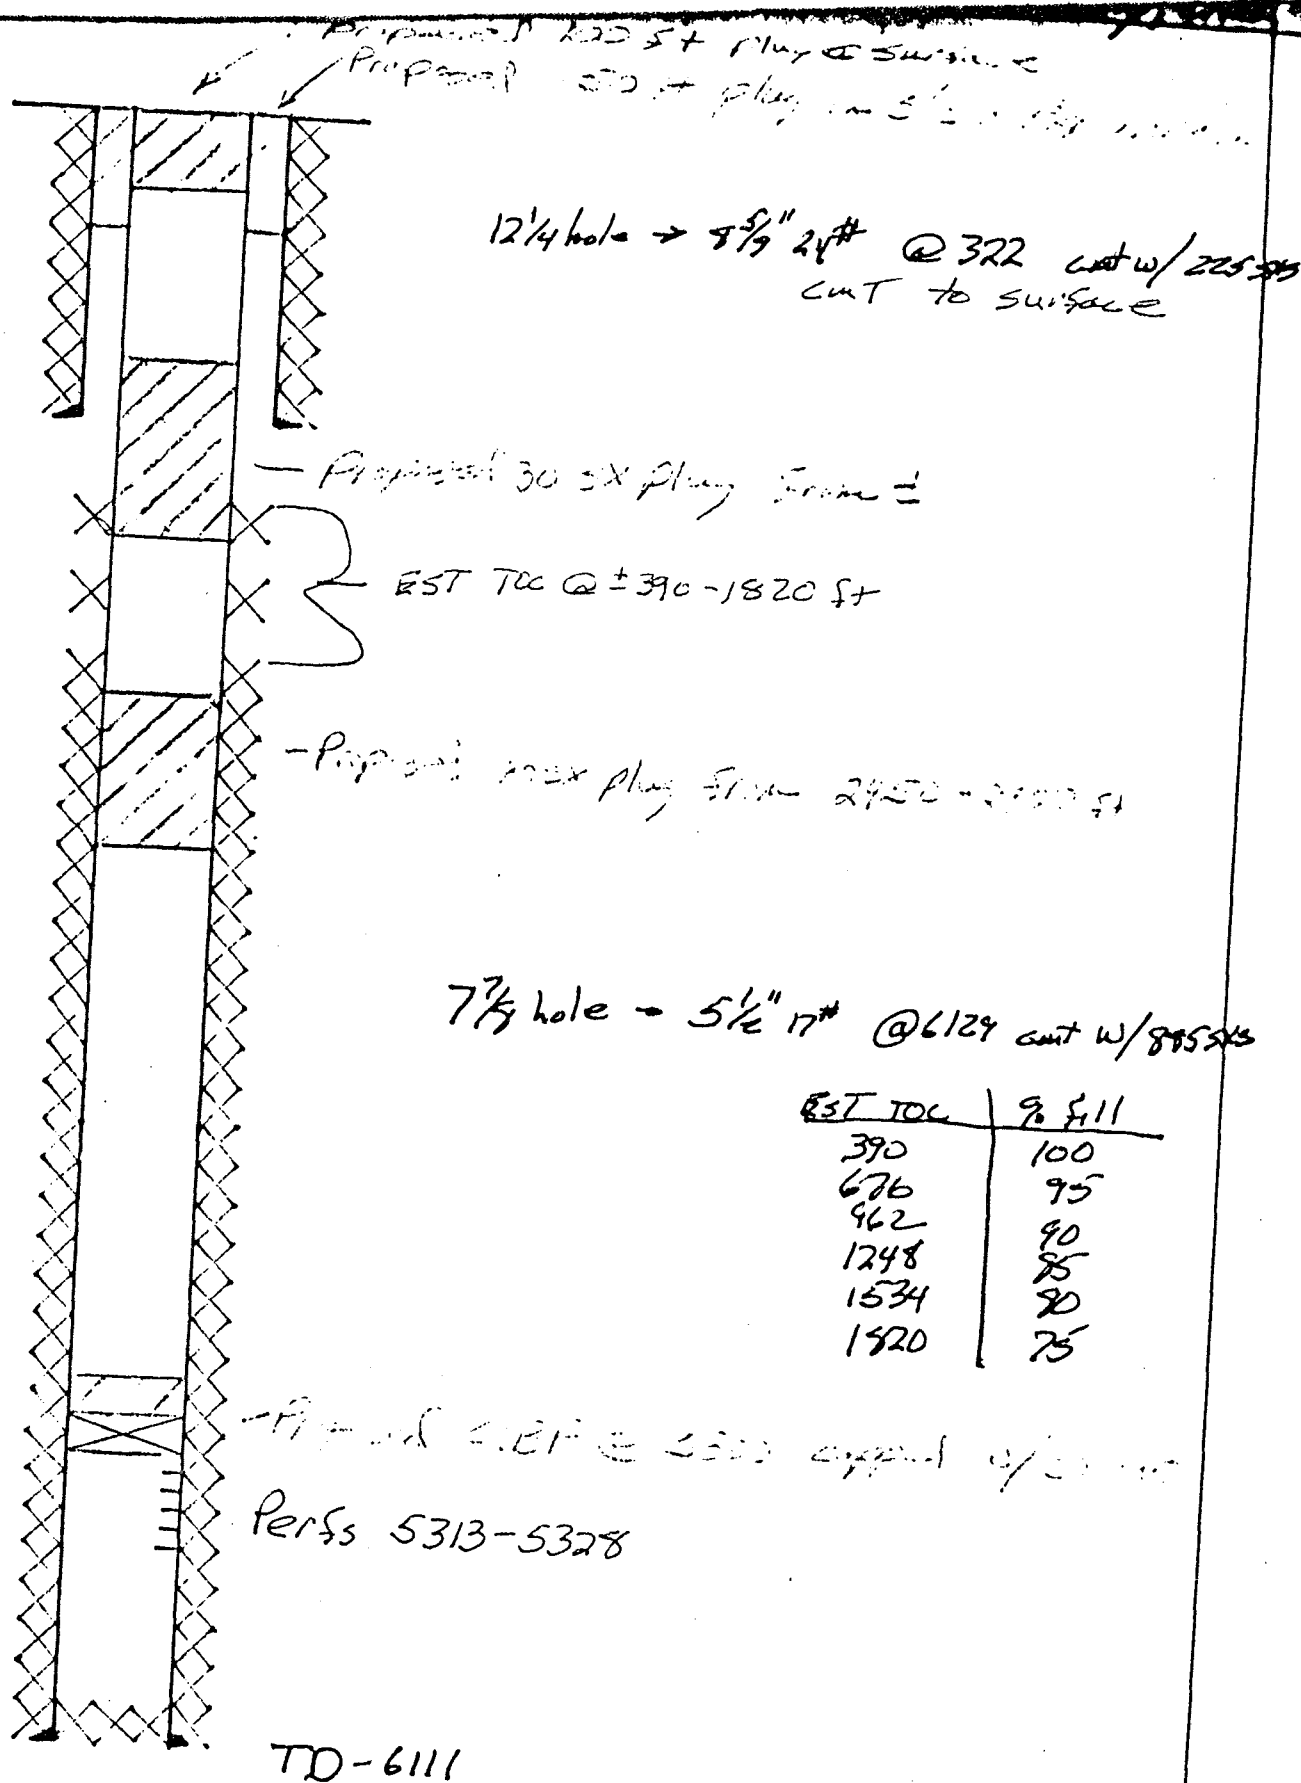 Proposed ft plug @ surface
Proposed ft plug in
12 1/4 hole → 8 5/8" 24# @ 322 cmt w/ 225 sxs
cmT to surface
- Proposed 30 sx plug from ±
EST TOC @ ± 390-1820 ft
- Proposed plug from ft
7 7/8 hole - 5 1/2" 17# @ 6129 cmt w/ 885 sxs
EST TOC | % fill
390 100
676 95
962 90
1248 85
1534 80
1820 75
- @ capped w/
Perfs 5313-5328
TD-6111